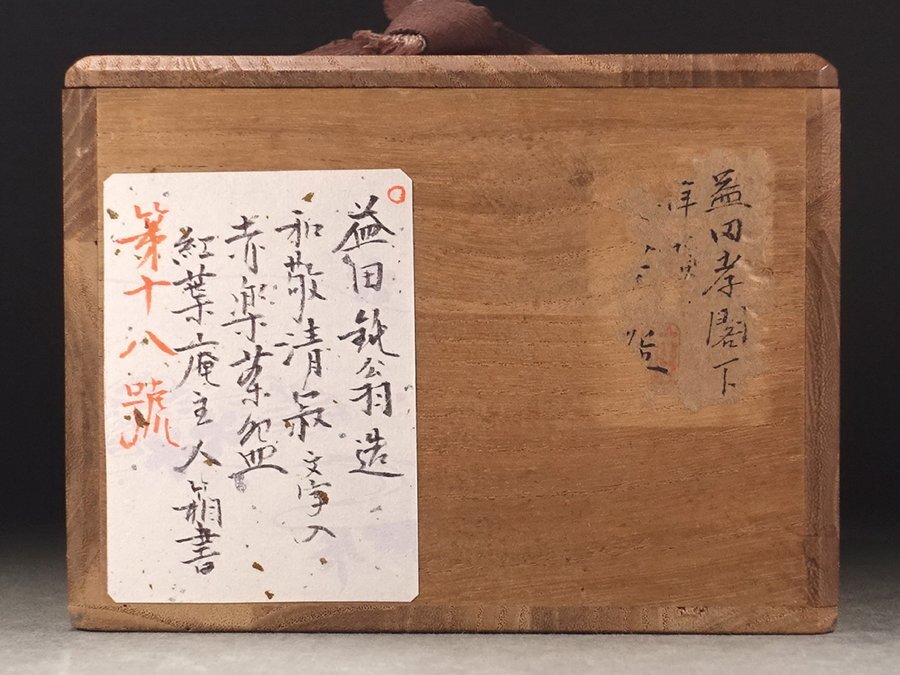 益田孝閣下
益田鈍翁造
和敬清寂文字入
赤楽茶盌
紅葉庵主人箱書
第十八號